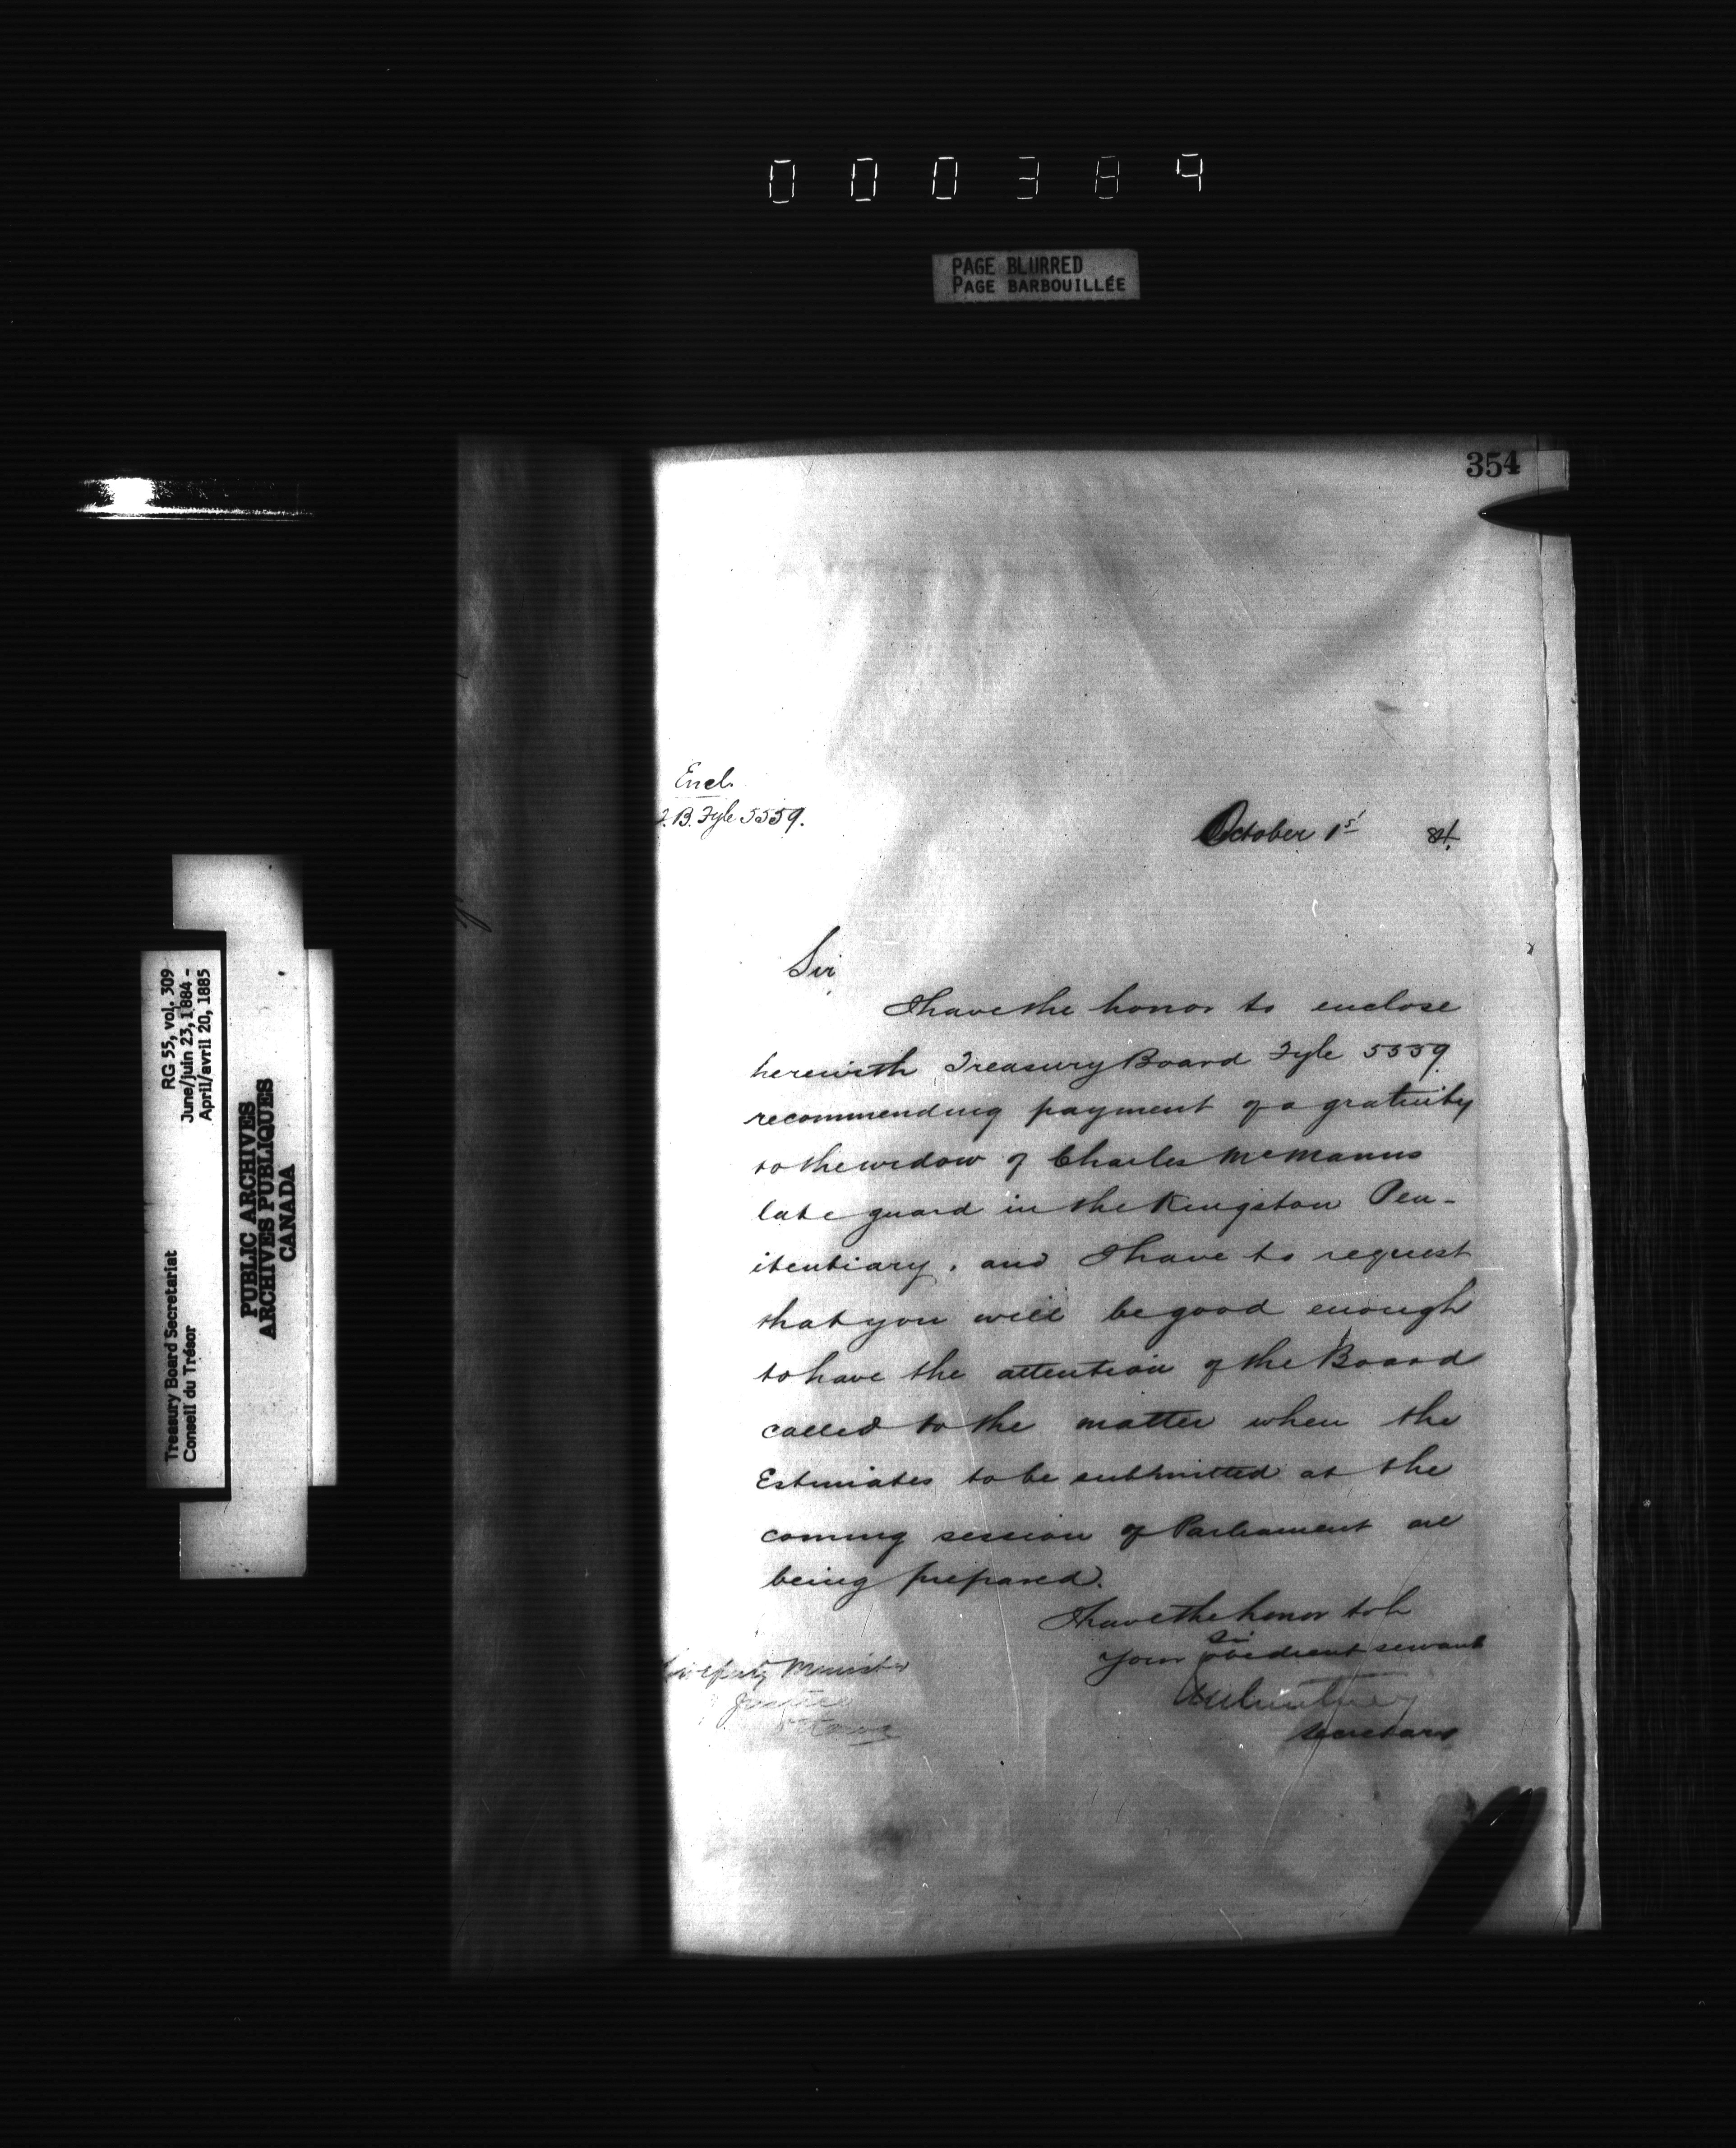 000384
PAGE BLURRED
PAGE BARBOUILLÉE
354
Encl.
T.B. Fyle 5559.
October 1st 84.
Sir
I have the honor to enclose
herewith Treasury Board Fyle 5559
recommending payment of a gratuity
to the widow of Charles McManus
late guard in the Kingston Pen-
itentiary, and I have to request
that you will be good enough
to have the attention of the Board
called to the matter when the
Estimates to be submitted at the
coming session of Parliament are
being prepared.
I have the honor to be
Sir
Your obedient servant
Secretary
Deputy Minister
Justice
Ottawa
RG 55, vol. 309
June/juin 23, 1884 -
April/avril 20, 1885
Treasury Board Secretariat
Conseil du Trésor
PUBLIC ARCHIVES
ARCHIVES PUBLIQUES
CANADA